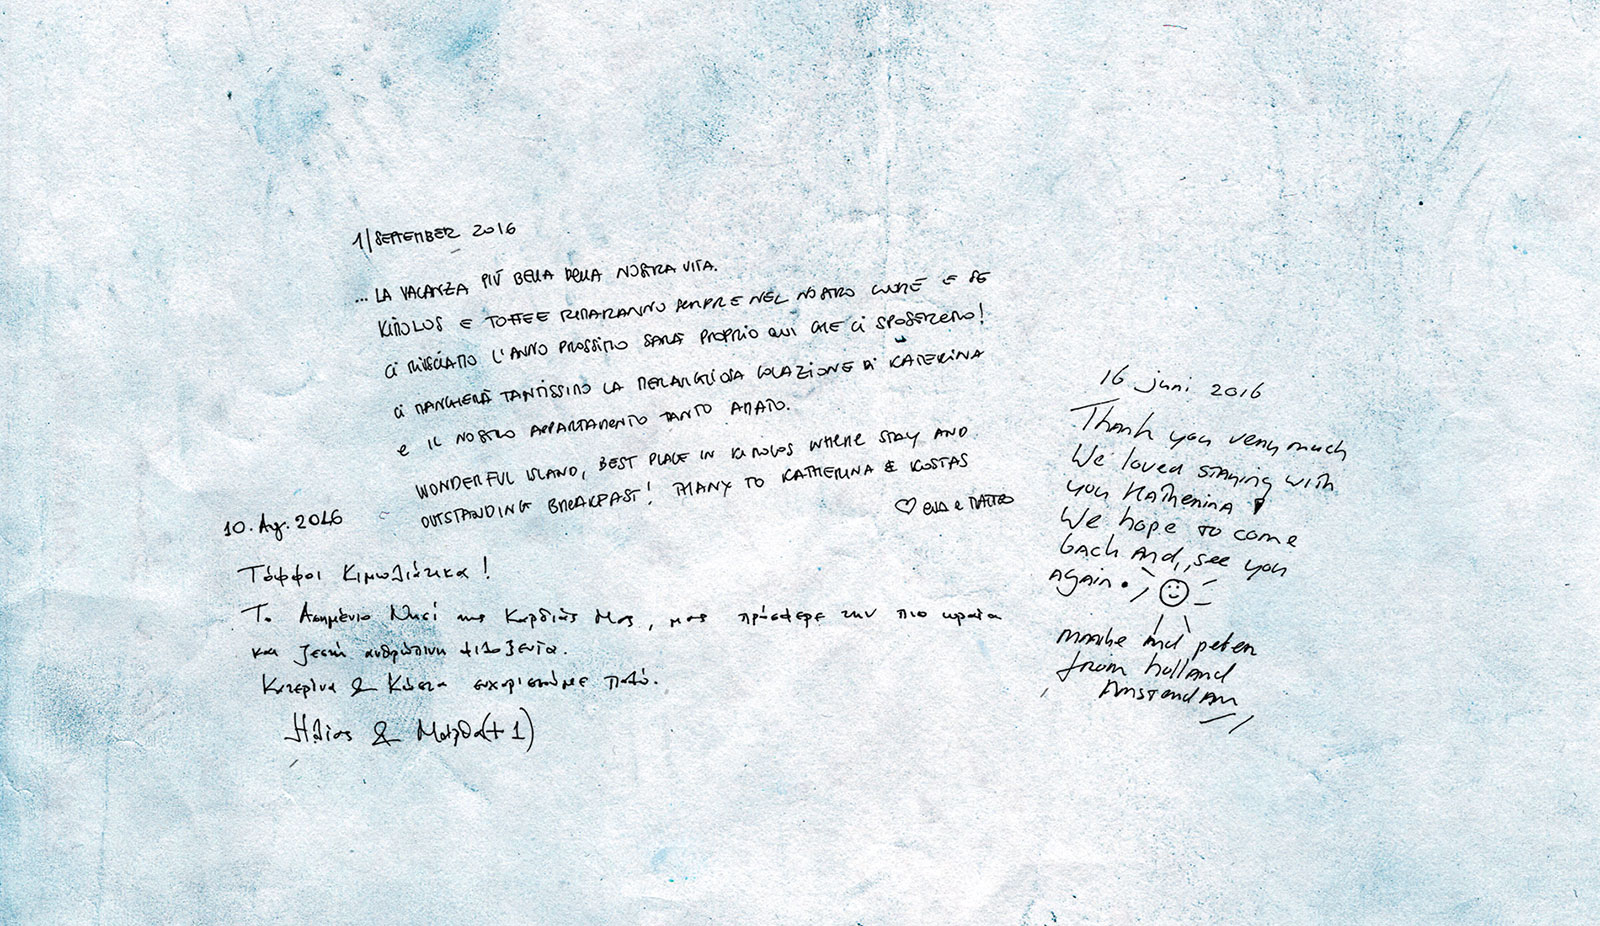 1/SEPTEMBER 2016
... LA VACANZA PIÙ BELLA DELLA NOSTRA VITA.
KIMOLOS E TOFFEE RIMARANNO SEMPRE NEL NOSTRO CUORE E SE
CI RIUSCIAMO L'ANNO PROSSIMO SARÀ PROPRIO QUI CHE CI SPOSEREMO!
CI MANCHERÀ TANTISSIMO LA MERAVIGLIOSA COLAZIONE DI KATERINA
E IL NOSTRO APPARTAMENTO TANTO AMATO.
WONDERFUL ISLAND, BEST PLACE IN KIMOLOS WHERE STAY AND
OUTSTANDING BREAKFAST! THANX TO KATHERINA & KOSTAS
♡ EVA E MATTEO
10. Αυγ. 2016
Τόφφοι Κιμωλιάτικα!
Το Ασημένιο Νησί της Καρδιάς Μας, μας πρόσφερε την πιο ωραία
και ζεστή ανθρώπινη φιλοξενία.
Κατερίνα & Κώστα ευχαριστούμε πολύ.
Ηλίας & Μάρθα (+1)
16 juni 2016
Thank you very much
We loved staying with
you Katherina
We hope to come
back and, see you
again.
and peter
from holland
Amsterdam